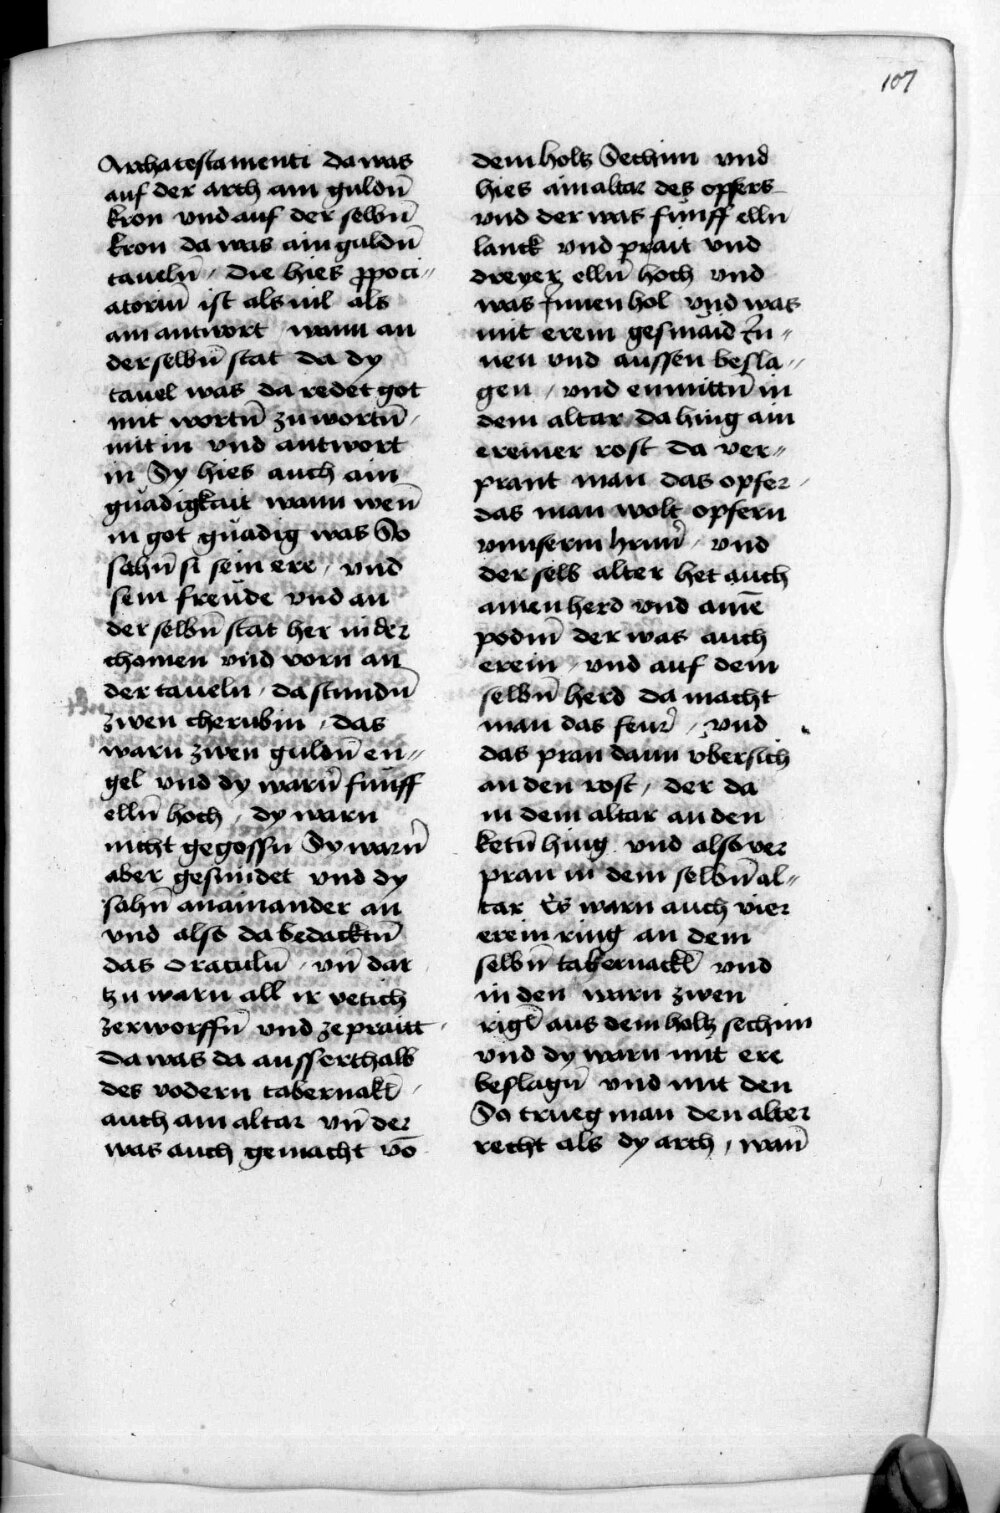 107
Archa testamenti da was
auf der arch ain guldn̄
kron vnd auf der selbn̄
kron da was ain guldn̄
taueln̄ / die hies ꝓpoci〃
atoriū ist als uil als
ain antwort wann an
der selbn̄ stat da dy
tauel was da redet got
mit wortn̄ zu wortn̄ /
mit in vnd antwort
in Sy hies auch ain
gnadigkait wann wen̄
in got gnadig was So
sahn̄ si sein ere / vnd
sein freude vnd an
der selbn̄ stat her nider
chomen vnd vorn an
der taueln / da stundn̄
zwen cherubin / das
warn zwen guldn̄ en〃
gel vnd dy warn̄ funff
elln̄ hoch / dy warn
nicht gegossn Sy warn̄
aber gesmidet vnd dy
sahn̄ an ainander an
vnd also da bedacktn̄
das Oraculū / vn̄ dar
tzu warn all ir vetich
zerworffn̄ vnd ze praitt /
Da was da ausserthalb
des vodern tabernakl̄ /
auch ain altar vn̄ der
was auch gemacht vō
dem holtz Sechim vnd
hies ain altar des opfers
vnd der was funff elln̄
lanck vnd prait vnd
dreyer elln̄ hoch vnd
was Innen hol vnd was
mit erein gesmaid In〃
nen vnd aussen besla〃
gen / vnd enmittn̄ in
dem altar da hing ain
ereiner rost da ver〃
prant man das opfer /
das man wolt opfern
vnnserm hrrn̄ / vnd
der selb alter het auch
ainen herd vnd ainē
podm̄ der was auch
erein / vnd auf dem
selbn̄ herd da macht
man das feur̄ / vnd
das pran dann vbersich
an den rost / der da
in dem altar an den
ketn̄ hing vnd also ver
pran in dem selbn̄ al〃
tar Es warn auch vier
erein ring an dem
selbn̄ tabernackl̄ vnd
in den warn zwen
rigl̄ aus dem holtz sechim
vnd dy warn mit ere
beslagn̄ vnd mit den
So trueg man den alter
recht als dy arch / wan̄